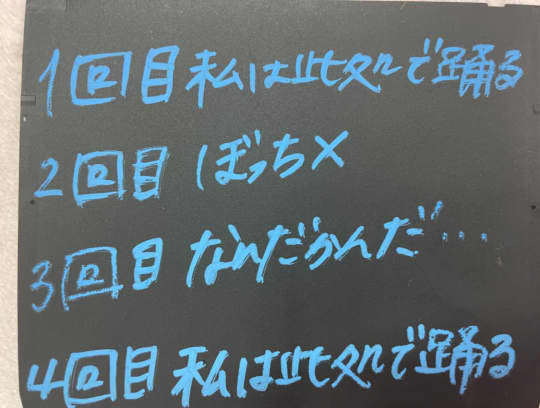 1回目 私は此処で踊る
2回目 ぼっち×
3回目 なんだかんだ…
4回目 私は此処で踊る